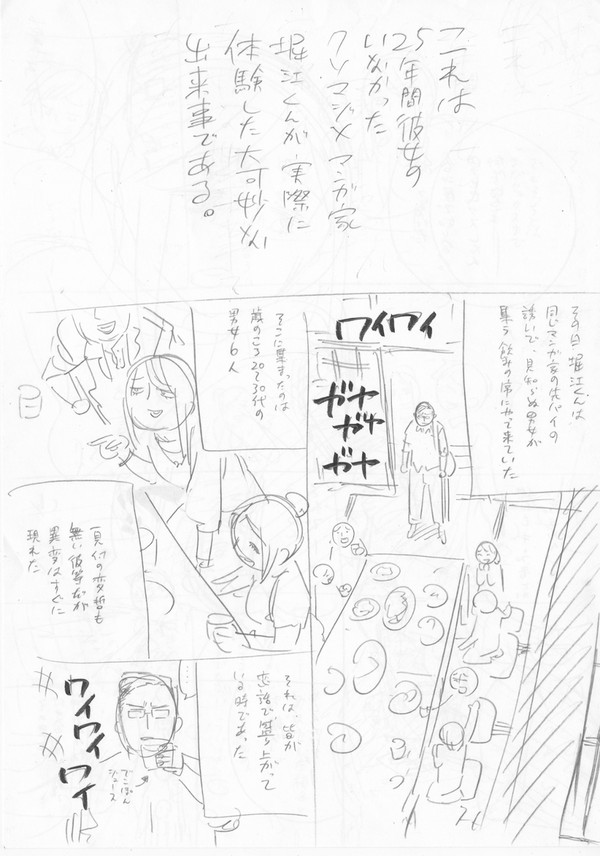 これは
25年間彼女の
いなかった
クソマジメマンガ家
堀江くんが、実際に
体験した大変
出来事である。
その日、堀江くんは
同じマンガ家の先パイの
誘いで、見知らぬ男女が
集う飲みの席にやって来ていた
ワイワイ
ガヤ
ガヤ
ガヤ
そこに集まったのは
歳のころ20〜30代の
男女6人
見付の変哲も
無い彼等だが
異変はすぐに
現れた
それは、皆が
恋話で盛り上がって
いる時であった
…
ワイワイワイ
でこぽん
ジュース